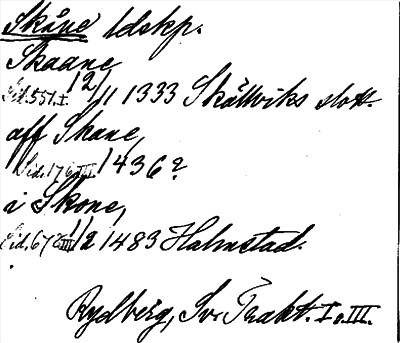 Skåne ldskp.
Skaane,
Sid. 551. I 12/11 1333 Skällviks slott.
aff Skane,
Sid. 176. III. 1436?
i Skone,
Sid. 672 III 1/2 1483 Halmstad.
Rydberg, Sv. Trakt. I o. III.